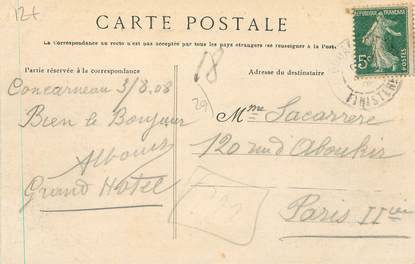 12+
CARTE POSTALE
La Correspondance au recto n'est pas acceptée par tous les pays étrangers (se renseigner à la Poste
RÉPUBLIQUE FRANÇAISE
5c
POSTES
FINISTÈRE
Partie réservée à la correspondance
Adresse du destinataire
18
29
Concarneau 3/8.08
Bien le Bonjour
Grand Hotel
Mme Lacarrere
120 rue d'Aboukir
Paris IIe